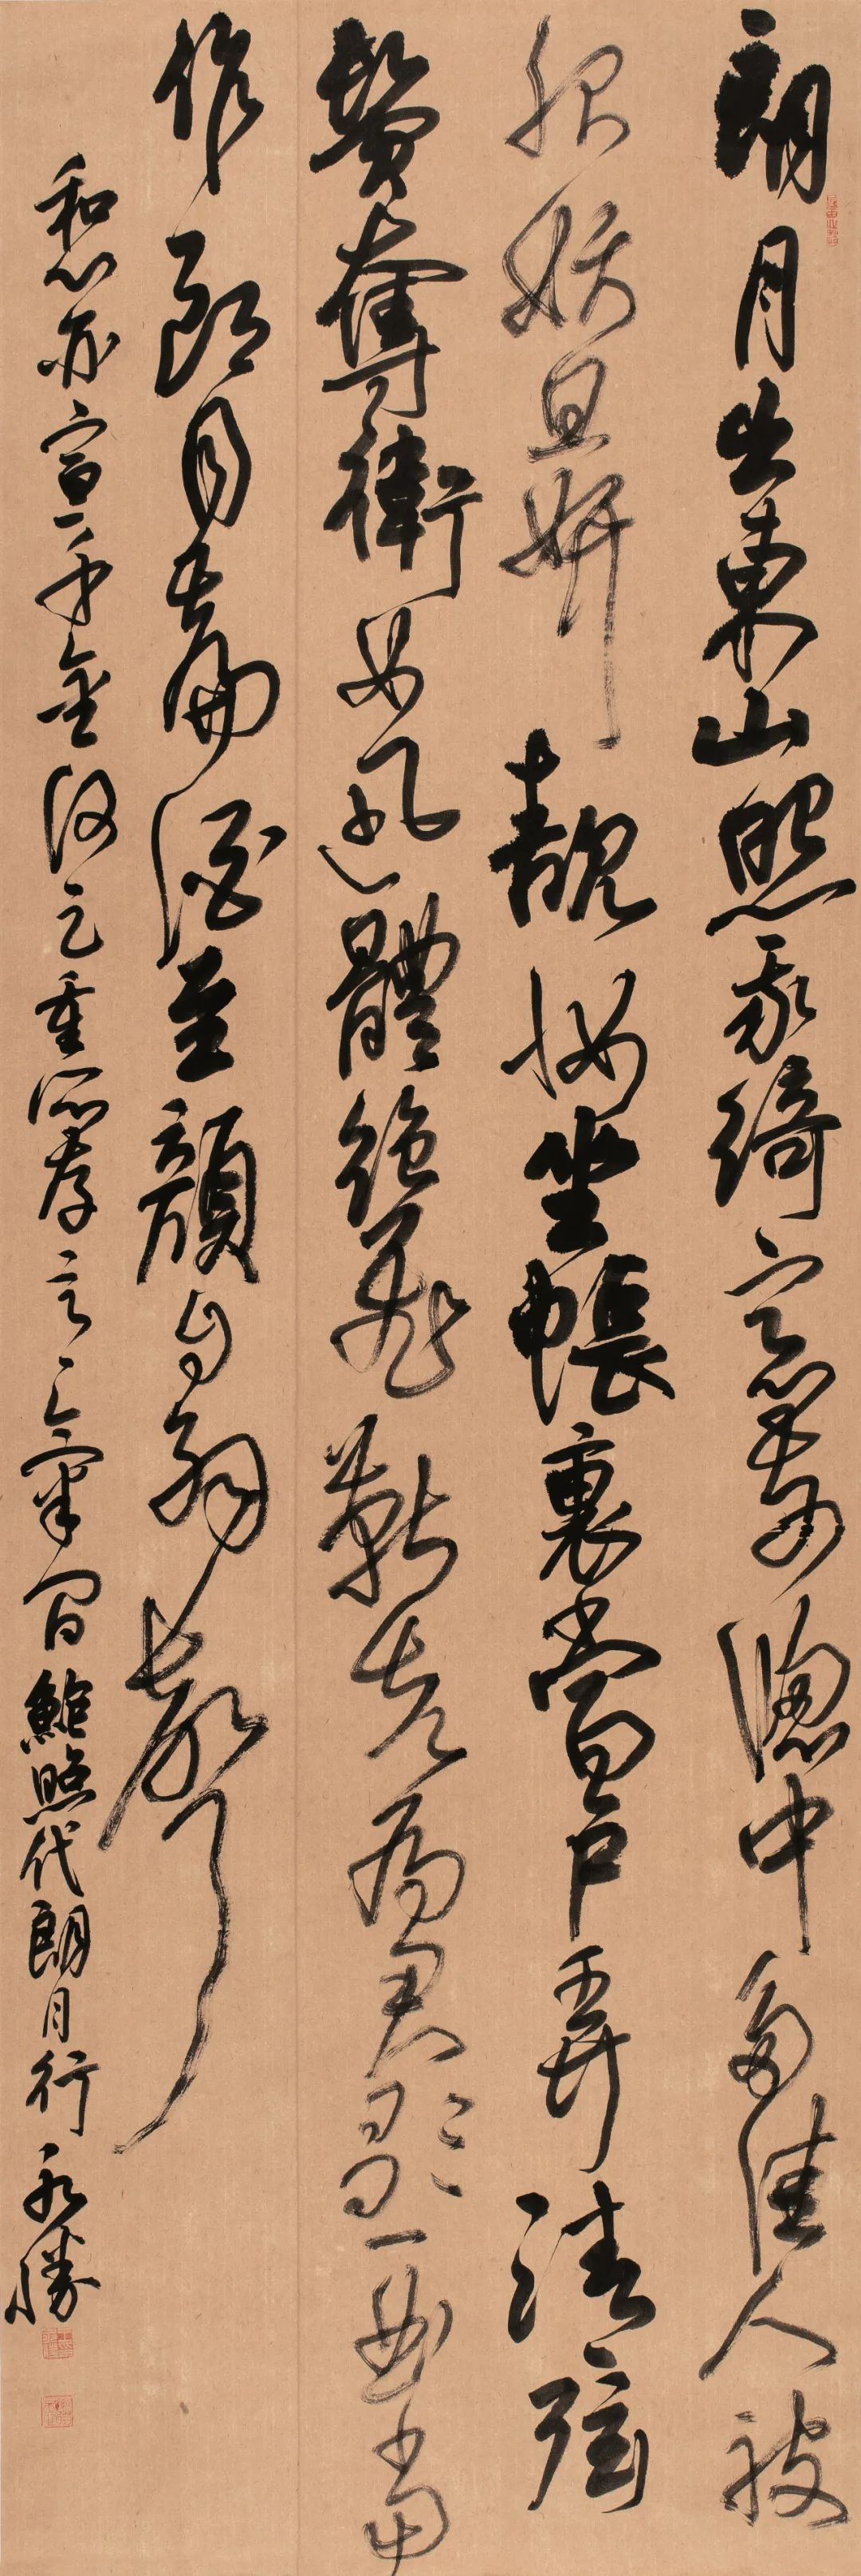 朗月出東山照我綺窗前窗中多佳人被
服妖且妍靚妝坐帳裏當戶弄清弦
鬢奪衛女迅體絕飛燕先為君歌一曲當
作朗月篇酒至顏自解聲
和心亦宣千金何足重所存意氣間鮑照代朗月行永勝